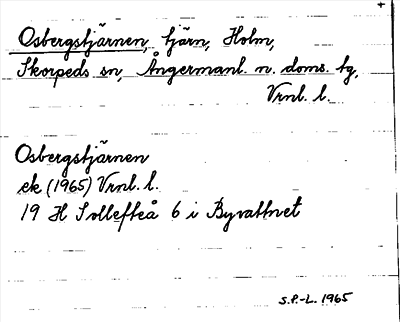 Osbergstjärnen, tjärn, Holm,
Skorpeds sn, Ångermanl. n. doms. tg,
Vrnl. l.
Osbergstjärnen
ek (1965) Vrnl. l.
19 H Sollefteå 6 i Byvattnet
S.P.-L. 1965